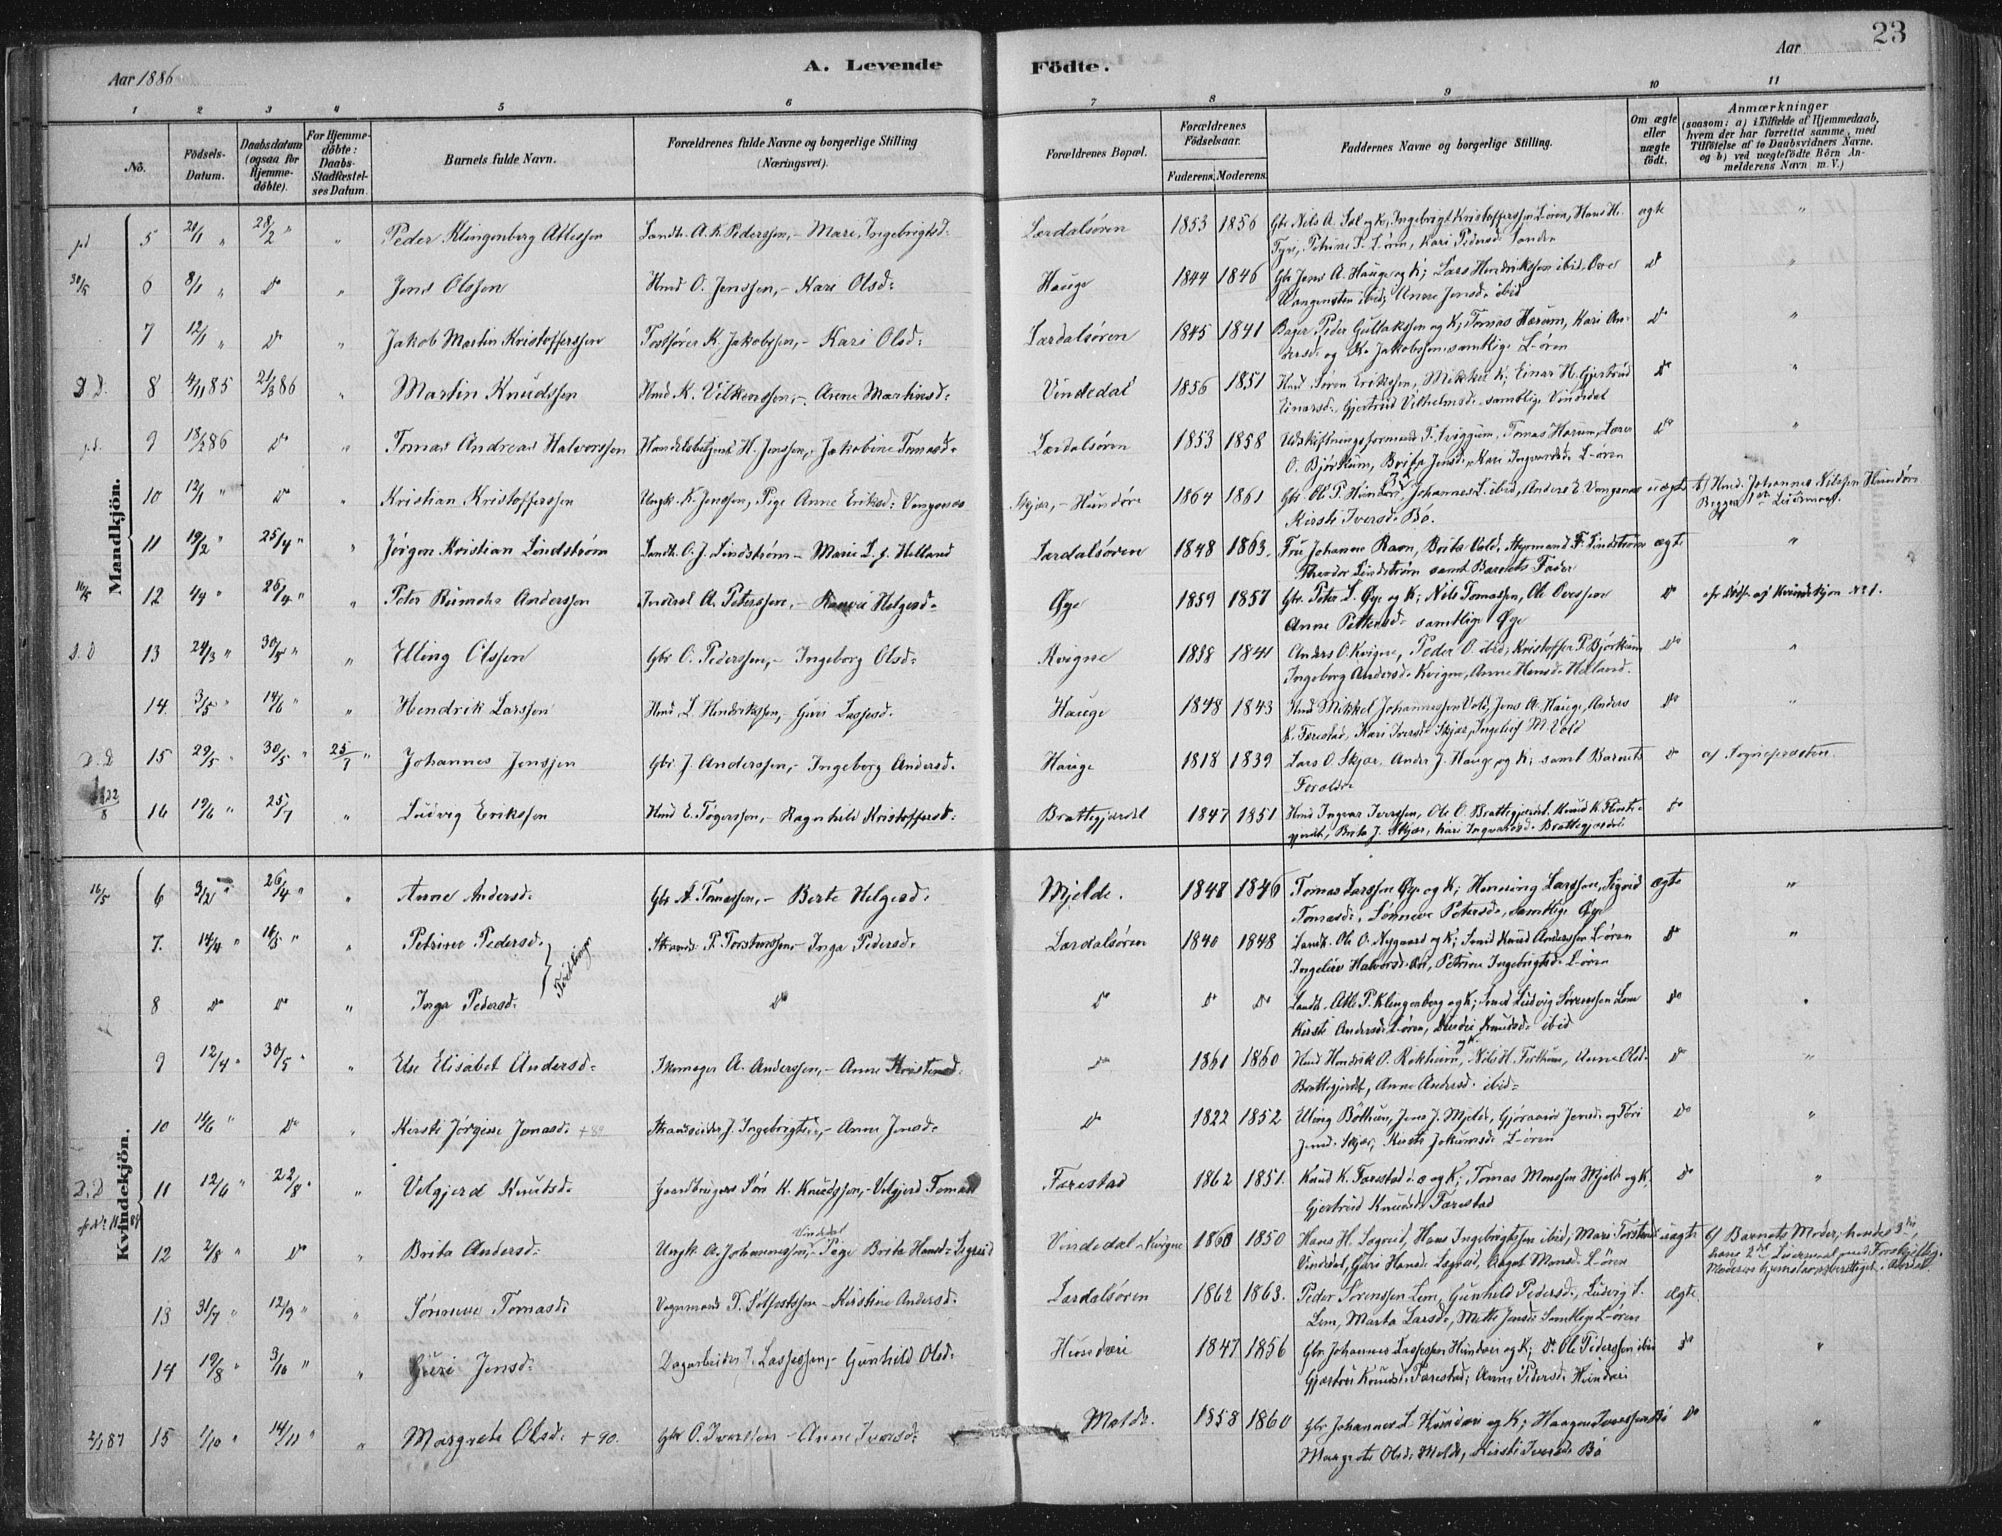 Aar 1886
A. Levende
Födte.
Aar
23
1 2 3 4 5 6 7 8 9 10 11
No.
Födsels-Datum.
Daabsdatum (ogsaa for Hjemme-döbte).
For Hjemme-döbte: Daabs-Stadfæstel-ses Datum.
Barnets fulde Navn.
Forældrenes fulde Navne og borgerlige Stilling (Næringsvei).
Forældrenes Bopæl.
Forældrenes Födselsaar.
Faderens. Moderens.
Faddernes Navne og borgerlige Stilling.
Om ægte eller uægte födt.
Anmærkninger
(saasom: a) i Tilfælde af Hjemmedaab, hvem der har forrettet samme, med Tilföielse af to Daabsvidners Navne, og b) ved uægtefödte Börn An-melderens Navn m. V.)
Mandkjön.
5 21/1 " 28/2 " " Peder Klingenberg Atlessen Landh. A. K. Pederssen, - Mari Ingebrigtsd. Lærdalsören 1853 1856 Gbr Nils A. Sol og K, Ingebrigt Kristofferssen L-ören, Hans H. ægte "
6 8/1 " do " Jens Olssen Hmd O. Jenssen, - Kari Olsd: Hauge 1844 1846 Gbr Jens A. Hauge og K; Lars Hendrikssen ibid, do "
Anne Jensd. ibid
7 12/1 " do " Jakob Martin Kristofferssen K. Jakobssen, - Kari Olsd: Lærdalsören 1845 1841 Bager Peder Gullakssen og K; Tomas Hærum, Kari An- do "
dersd. og K. Jakobssen samtlige L-ören
D. D. 8 4/11 85 21/3 86 " Martin Knudssen Hmd K. Vilkenssen, - Arene Martinsd: Vindedal 1856 1851 Hmd Søren Erikssen, Mikkel K; Einar H. Gjertrud do "
Einarsd. Gjertrud Vilhelmsd. samtlige Vindedal
9 18/2 86 do " Tomas Andreas Halvorssen Handelsbetjent H. Jenssen, Jakobine Tomasd. Lærdalsören 1853 1858 Udskiftningsformand Tomas Hærum, Lærer do "
O. Bjørkum, Brita Jensd. Kari Ingvardsd. L-ören
10 12/1 " do " Kristian Kristofferssen Ungk. K. Jenssen, Pige Anne Eriksd: Vangsnes Skjær, - Hunderi 1864 1861 Gbr Ole P. Hunderi Johannes L. ibid, Anders E. Vangsnes uægte b) Hmd. Johannes Nilssen Hunderi
Kirsti Iversd. Bö. Begges 1ste Leiermaal.
11 19/2 " 25/4 " " Jörgen Kristian Lindström Landh. O. J. Lindström - Marie L. f. Holland Lærdalsören 1848 1863. Fru Johanne Ravn, Brita Vold, Styrmand F. Lindström ægte "
Theodor Lindström samt Barnets Fader
16/5 12 4/4 " 26/4 " " Peter Rumohr Anderssen Inderst A. Peterssen, - Helgesd. Øye 1859 1857 Gbr. Peter L. Øye og K; Nils Tomassen, Ole Ovessen do
Anne Pettersd. samtlige Øye
D. D 13 24/3 " 30/5 " " Elling Olssen Gbr O. Pederssen, - Ingeborg Olsd: Kvigne 1838 1841 Anders O. Kvigne, Peder O. ibid; Kristoffer P. Bjørkum do "
Ingeborg Andersd. Kvigne, Anne Hansd. Hæland.
14. 3/5 " 14/6 " " Hendrik Larssen Hmd L. Hendrikssen, - Guri Lassesd. Hauge 1848 1843 Hmd Mikkel Johannessen Vold, Jens A. Hauge, Anders do "
K. Farestad, Kari Iversd. Skjær, Ingeleif M. Vold
D. D 15 29/5 " 30/5 " 25/7 " Johannes Jenssen Gbr. J. Anderssen, - Ingeborg Andersd. Hauge 1818 1839 Lars O. Skjær, Anders J. Hauge og K; samt Barnets do a) Sognepræsten.
Forældre
22/8 16 19/6 " 25/7 " Ludvig Erikssen Hmd E. Tögerssen, - Ragnhild Kristoffersd: Brattegjerdet 1847 1851 Hmd Ingvar Iverssen, Ole O. Brattegjerdet, Knud K.
Brita J. Skjær, Kari Ingvarsd. Brattegjerdet
Kvindekjön.
16/5 6 3/2 " 26/4 " " Anne Andersd. Gbr A. Tomassen, - Berte Helgesd. Mjelde. 1848 1846 Tomas Larssen Øye og K; Henning Larssen, Sigrid ægte "
Tomasd, Sønneve Petersd., samtlige Øye
7. 14/4 " 16/5 " " Petrine Pedersd. Strands. P. Torstenssen - Inga Pedersd. Lærdalsören 1840 1848 Landh. Ole O. Nygaard og K; Smed Knud Anderssen L-ören do "
Tvillinger
Ingeleiv Halvorsd. Petrine Ingebrigtsd. L-ören
8 do do " Inga Pedersd. do do do do Landh. Atle P. Klingenberg og K; Smed Ludvig Sørenssen Lem do "
Kirsti Andersd. L-ören, Knudsd. ibid
9 12/4 " 30/5 " " Else Elisabet Andersd. Skomager A. Anderssen, - Anne Kristensd. do 1861 1860 Hmd Hendrik O. Nils H. Anne Olsd. do "
Brattegjerdet, Anne Andersd. ibid.
10 11/6 " do " Kersti Jørgine Jonasd. +89 Strandsidder J. Ingebrigtss., - Anne Jensd. do 1822 1852 Elling Böthun, Jens J. Mjelde, Jensd. og Guri do "
Jensd. Skjær, Kirsti Jokumsd. L-ören
D. D 11 12/6 " 22/8 " " Velgjerd Knutsd. Gaardbrugers Søn K. Knudssen, - Velgjerd Tomasd Farestad 1862 1851. Knud K. Farestad og K; Tomas Monssen Mjelde og K. do "
Gjertrud Knudsd. Farestad
12 2/8 " do " Brita Andersd. Ungk. A. Johannessen, Vindedal - Pige Brita Hansd. Lægreid Vindedal - Kvigne 1860 1850 Hans H. Lægreid, Hans Ingebrigtssen ibid, Mari Torstensd. uægte b) Barnets Moder, hendes 3die,
Vindedal, Guri Hansd. Lægreid, Aagot Monsd. L-ören hans 2det Leiermaal med Forskjellig.
13 31/7 " 12/9 " " Sønneve Tomasd. Vognmand T. Sølfestssen - Kirstine Andersd. Lærdalsören 1862 1863. Peder Sørenssen Lem, Gunhild Pedersd., Ludvig S. ægte
Lem, Marta Larsd., Mette Jensd. Samtlige L-ören
14 19/8 " 3/10 " " Guri Jensd. Dagarbeider J. Lassessen, - Gunhild Olsd. Hunderi 1847 1856 Gbr Johannes Lassessen Hunderi og K; do Ole Pederssen ibid do "
Knudsd. Farestad; Anne Pedersd. Hunderi
2/1 87 15 1/10 " 14/11 " " Margrete Olsd. + 90. Gbr O. Iverssen - Anne Iversd. Molde. 1858 1860 Gbr Johannes L. Hunderi og K; Haagen Iverssen Bö do "
Margrete Olsd. Molde, Kirsti Iversd. Bö